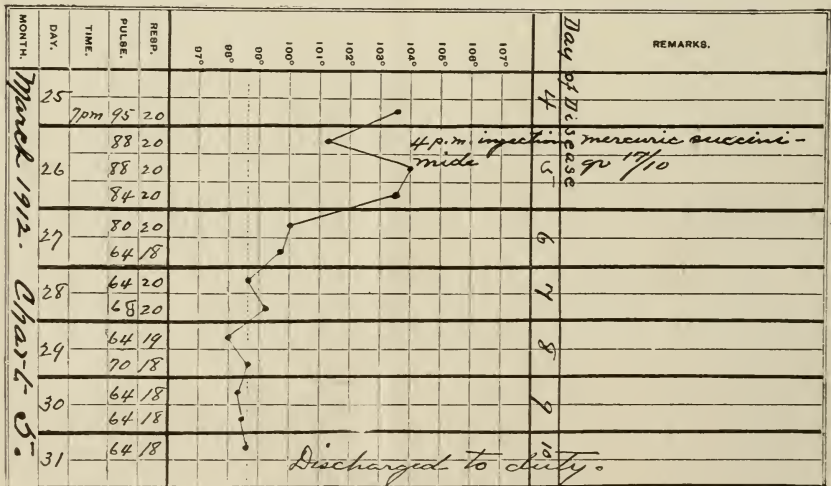 MONTH. DAY. TIME. PULSE. RESP. 97° 98° 99° 100° 101° 102° 103° 104° 105° 106° 107° Day of Disease REMARKS.
March 1912. Chart 5.
25 7pm 95 20 4
88 20 4 p.m. injection mercuric succini-
26 88 20 5 mide gr 17/10
84 20
27 80 20 6
64 18
28 64 20 7
68 20
29 64 19 8
70 18
30 64 18 9
64 18
31 64 18 10
Discharged to duty.